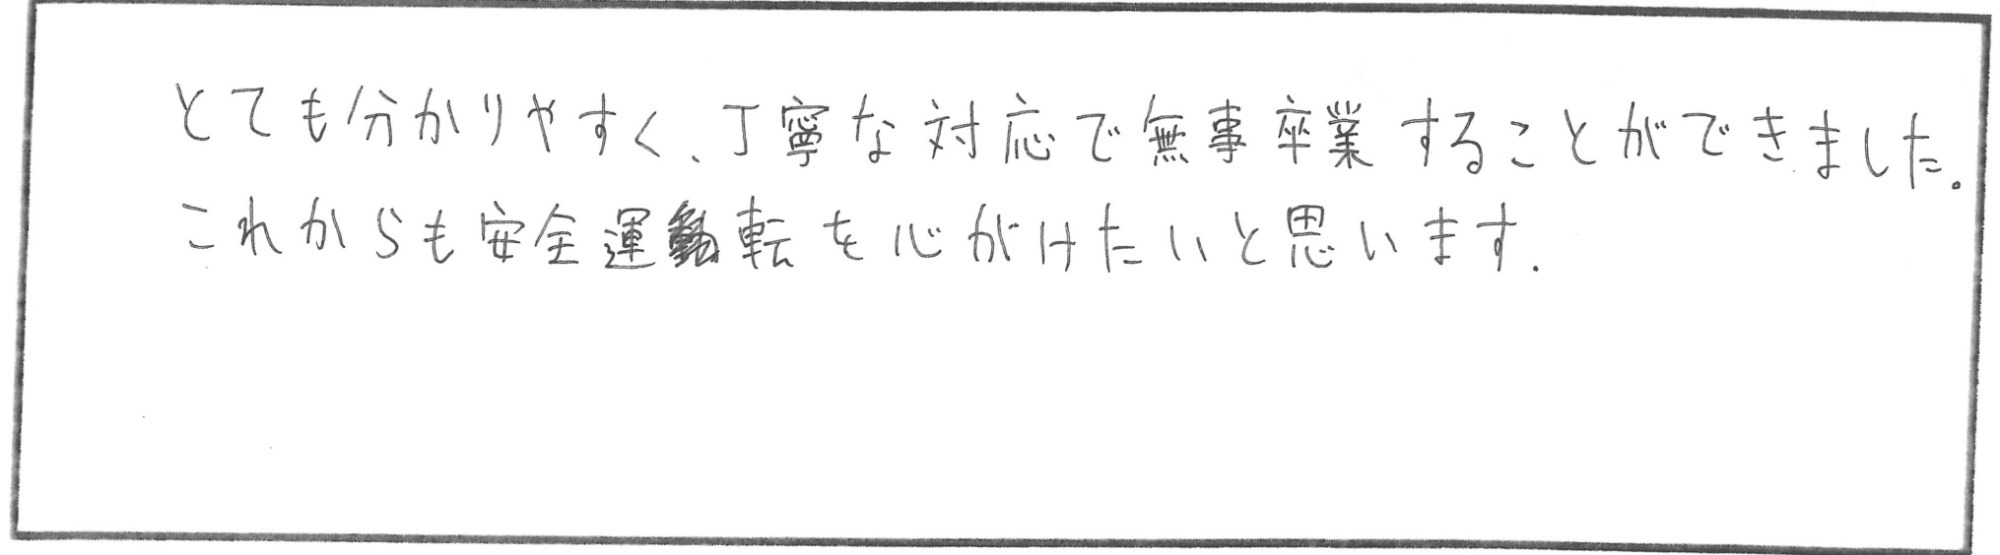 とても分かりやすく、丁寧な対応で無事卒業することができました。
これからも安全運転を心がけたいと思います.